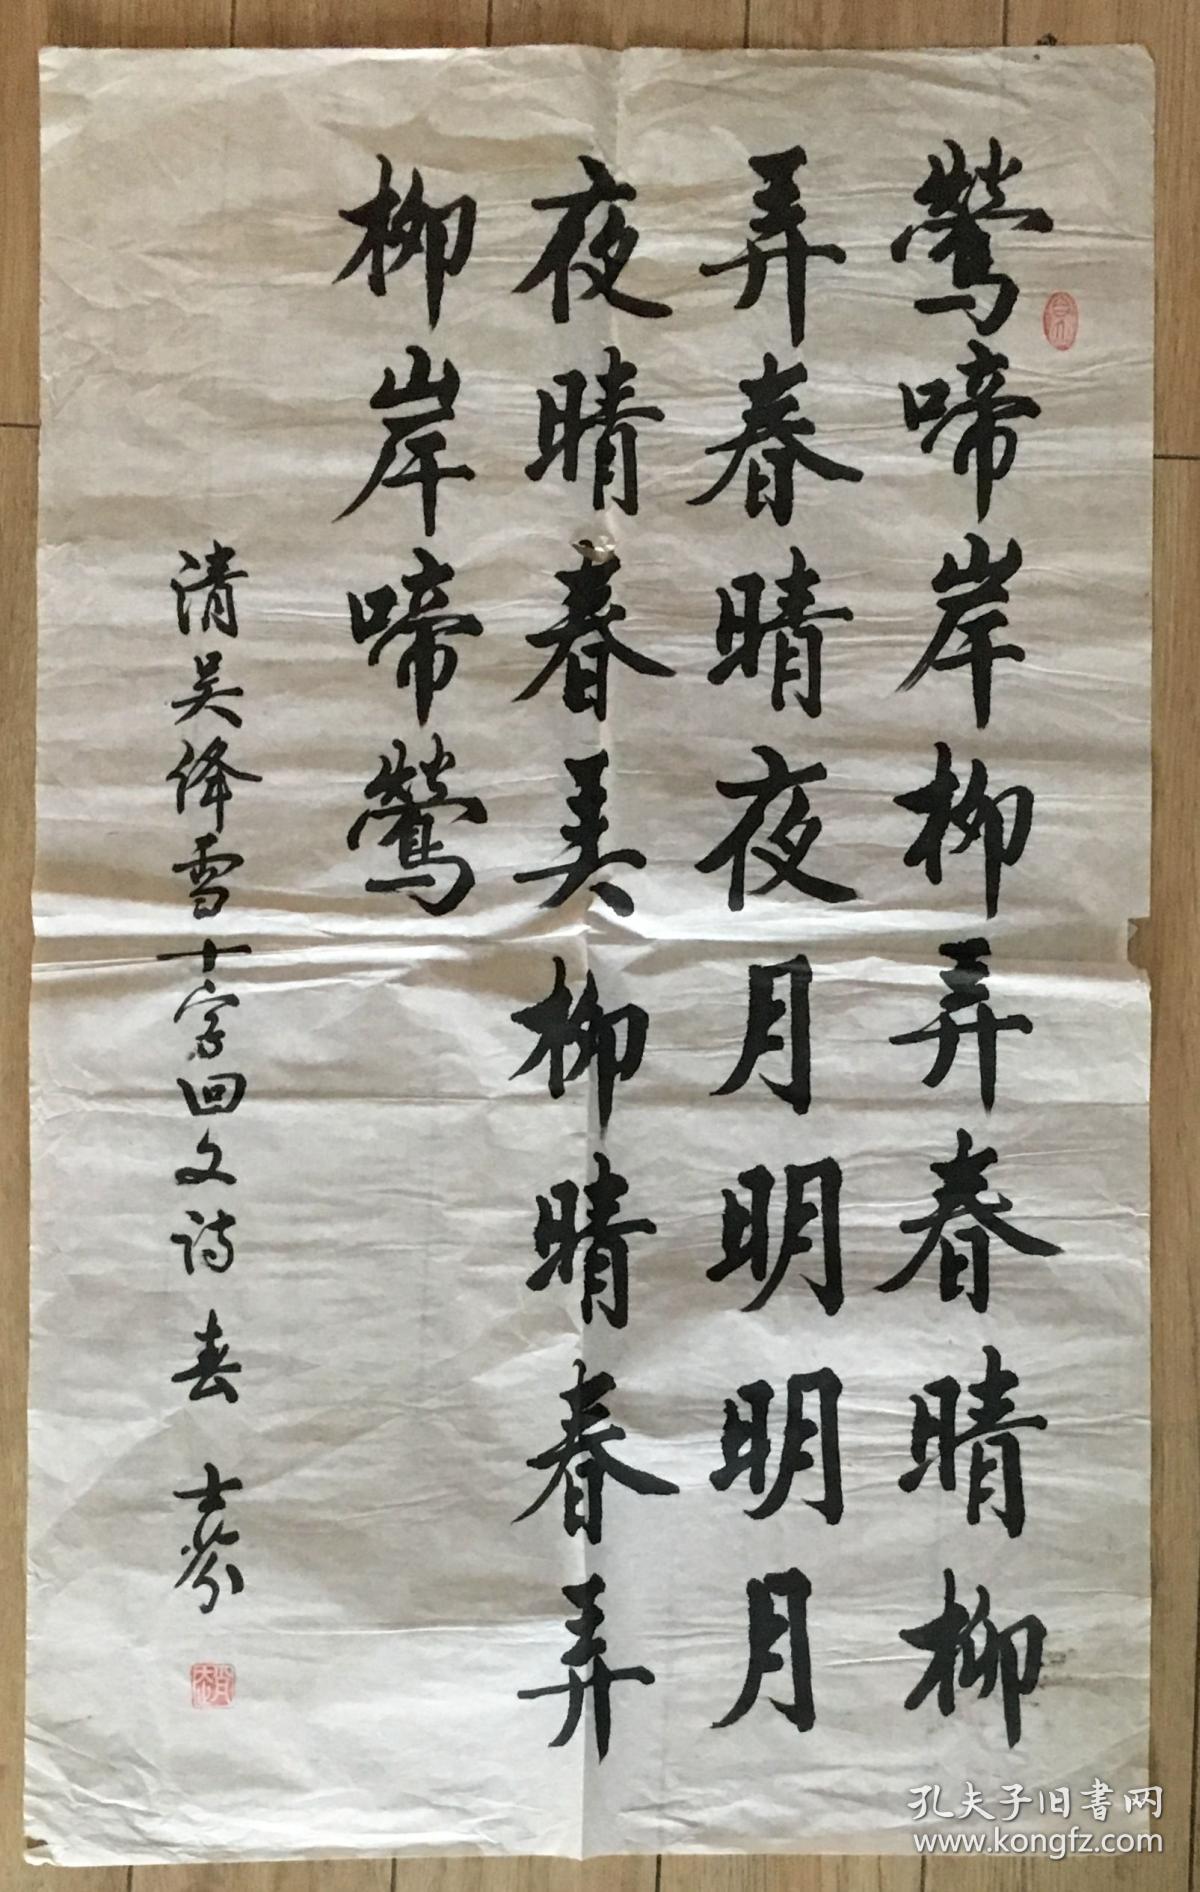 鶯啼岸柳弄春晴柳
弄春晴夜月明明月
夜晴春弄柳晴春弄
柳岸啼鶯
清吴绛雪十字回文诗 春 士芬
孔夫子旧書网
www.kongfz.com